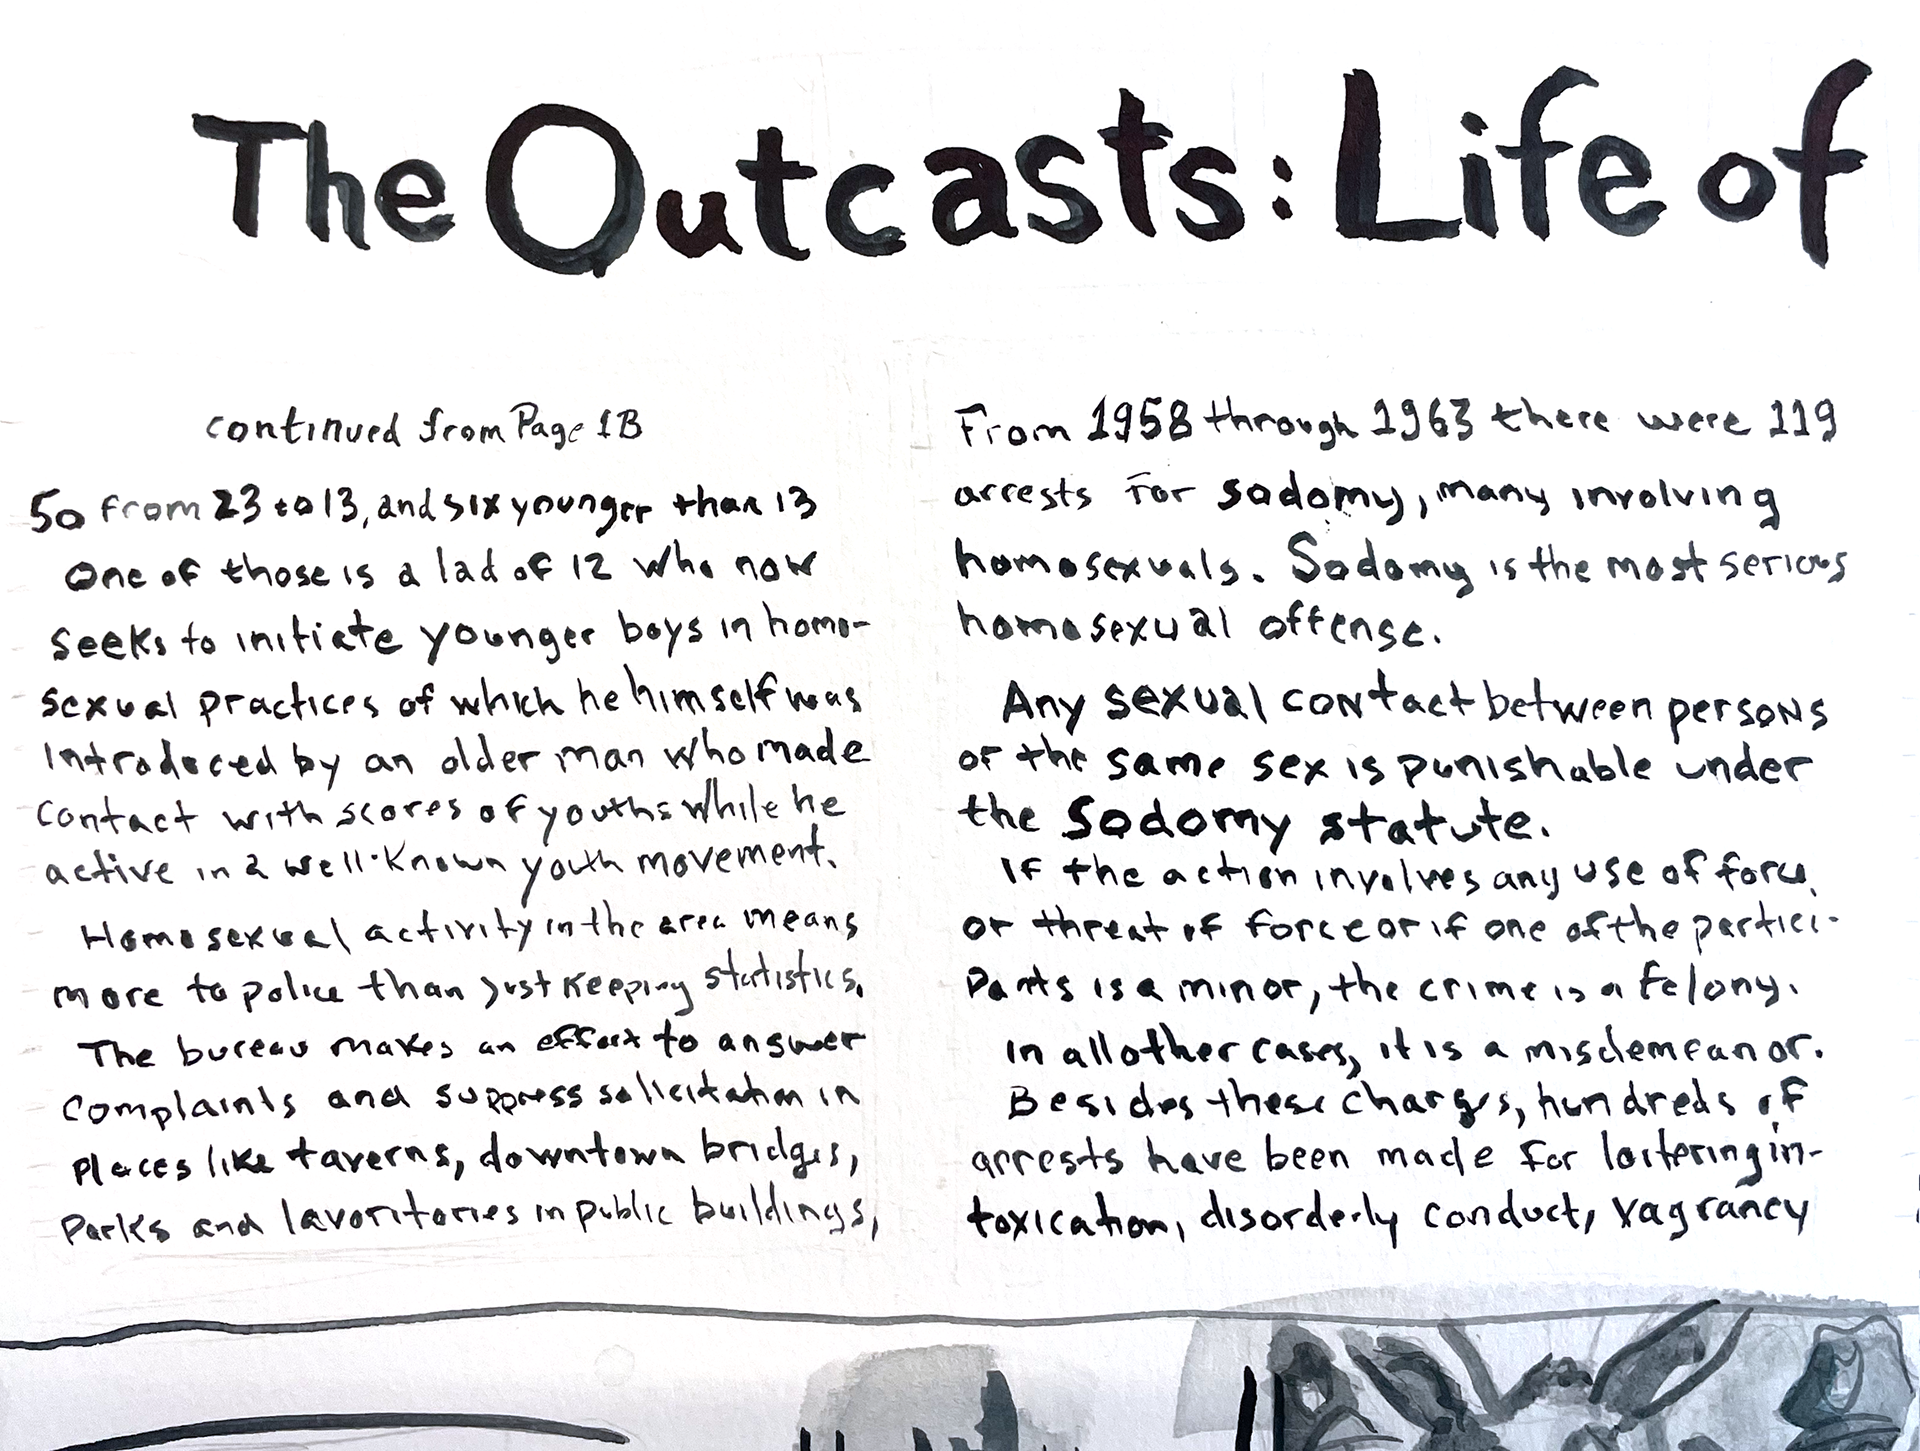 The Outcasts: Life of
continued from Page 1B
50 from 23 to 13, and six younger than 13
One of those is a lad of 12 who now
seeks to initiate younger boys in homo-
sexual practices of which he himself was
introduced by an older man who made
contact with scores of youths while he
active in a well-known youth movement.
Homosexual activity in the area means
more to police than just keeping statistics.
The bureau makes an effort to answer
complaints and suppress solicitation in
places like taverns, downtown bridges,
Parks and lavoritories in public buildings,
From 1958 through 1963 there were 119
arrests for sodomy, many involving
homosexuals. Sodomy is the most serious
homosexual offense.
Any sexual contact between persons
of the same sex is punishable under
the sodomy statute.
If the action involves any use of force,
or threat of force or if one of the partici-
pants is a minor, the crime is a felony.
in all other cases, it is a misdemeanor.
Besides these charges, hundreds of
arrests have been made for loitering in-
toxication, disorderly conduct, vagrancy